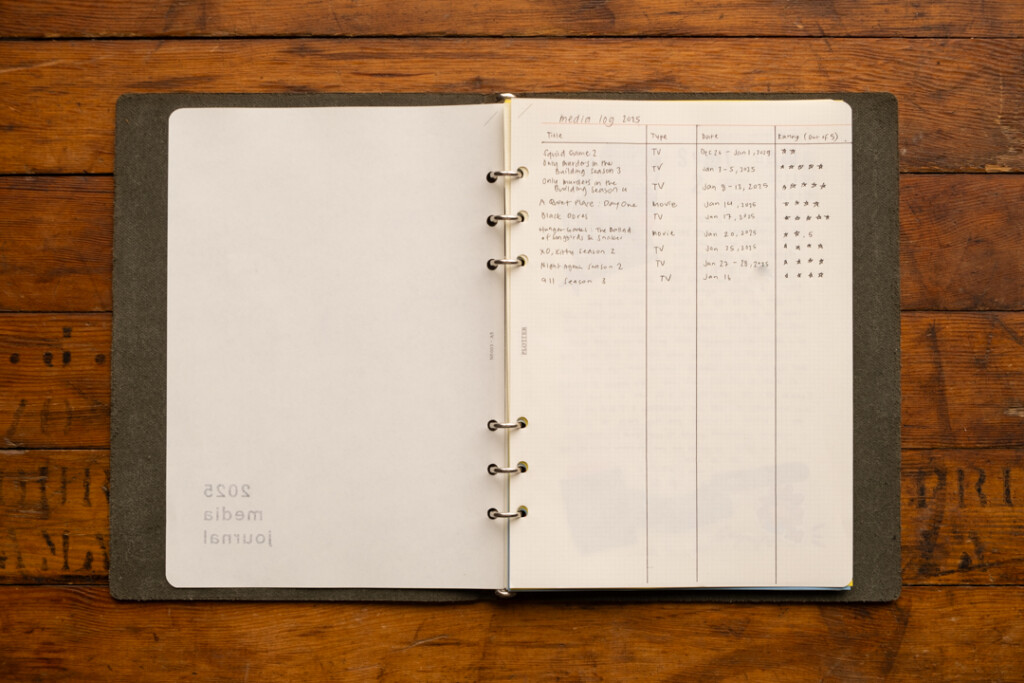 2025
media
journal
media log 2025
Title Type Date Rating (out of 5)
Squid Game 2 TV Dec 26 - Jan 1, 2025 **
Only murders in the
Building Season 3 TV Jan 3-5, 2025 *****
Only murders in the
Building Season TV Jan 8-12, 2025 *****
A Quiet Place: Day One Movie Jan 14, 2025 ****
Black Doves TV Jan 17, 2025 *****
Hunger Games: The Ballad
of Songbirds & Snakes Movie Jan 20, 2025 **.5
XO, Kitty Season 2 TV Jan 25, 2025 ****
Night Agent Season 2 TV Jan 27 - 28, 2025 ****
911 Season 8 TV Jan 16 ****